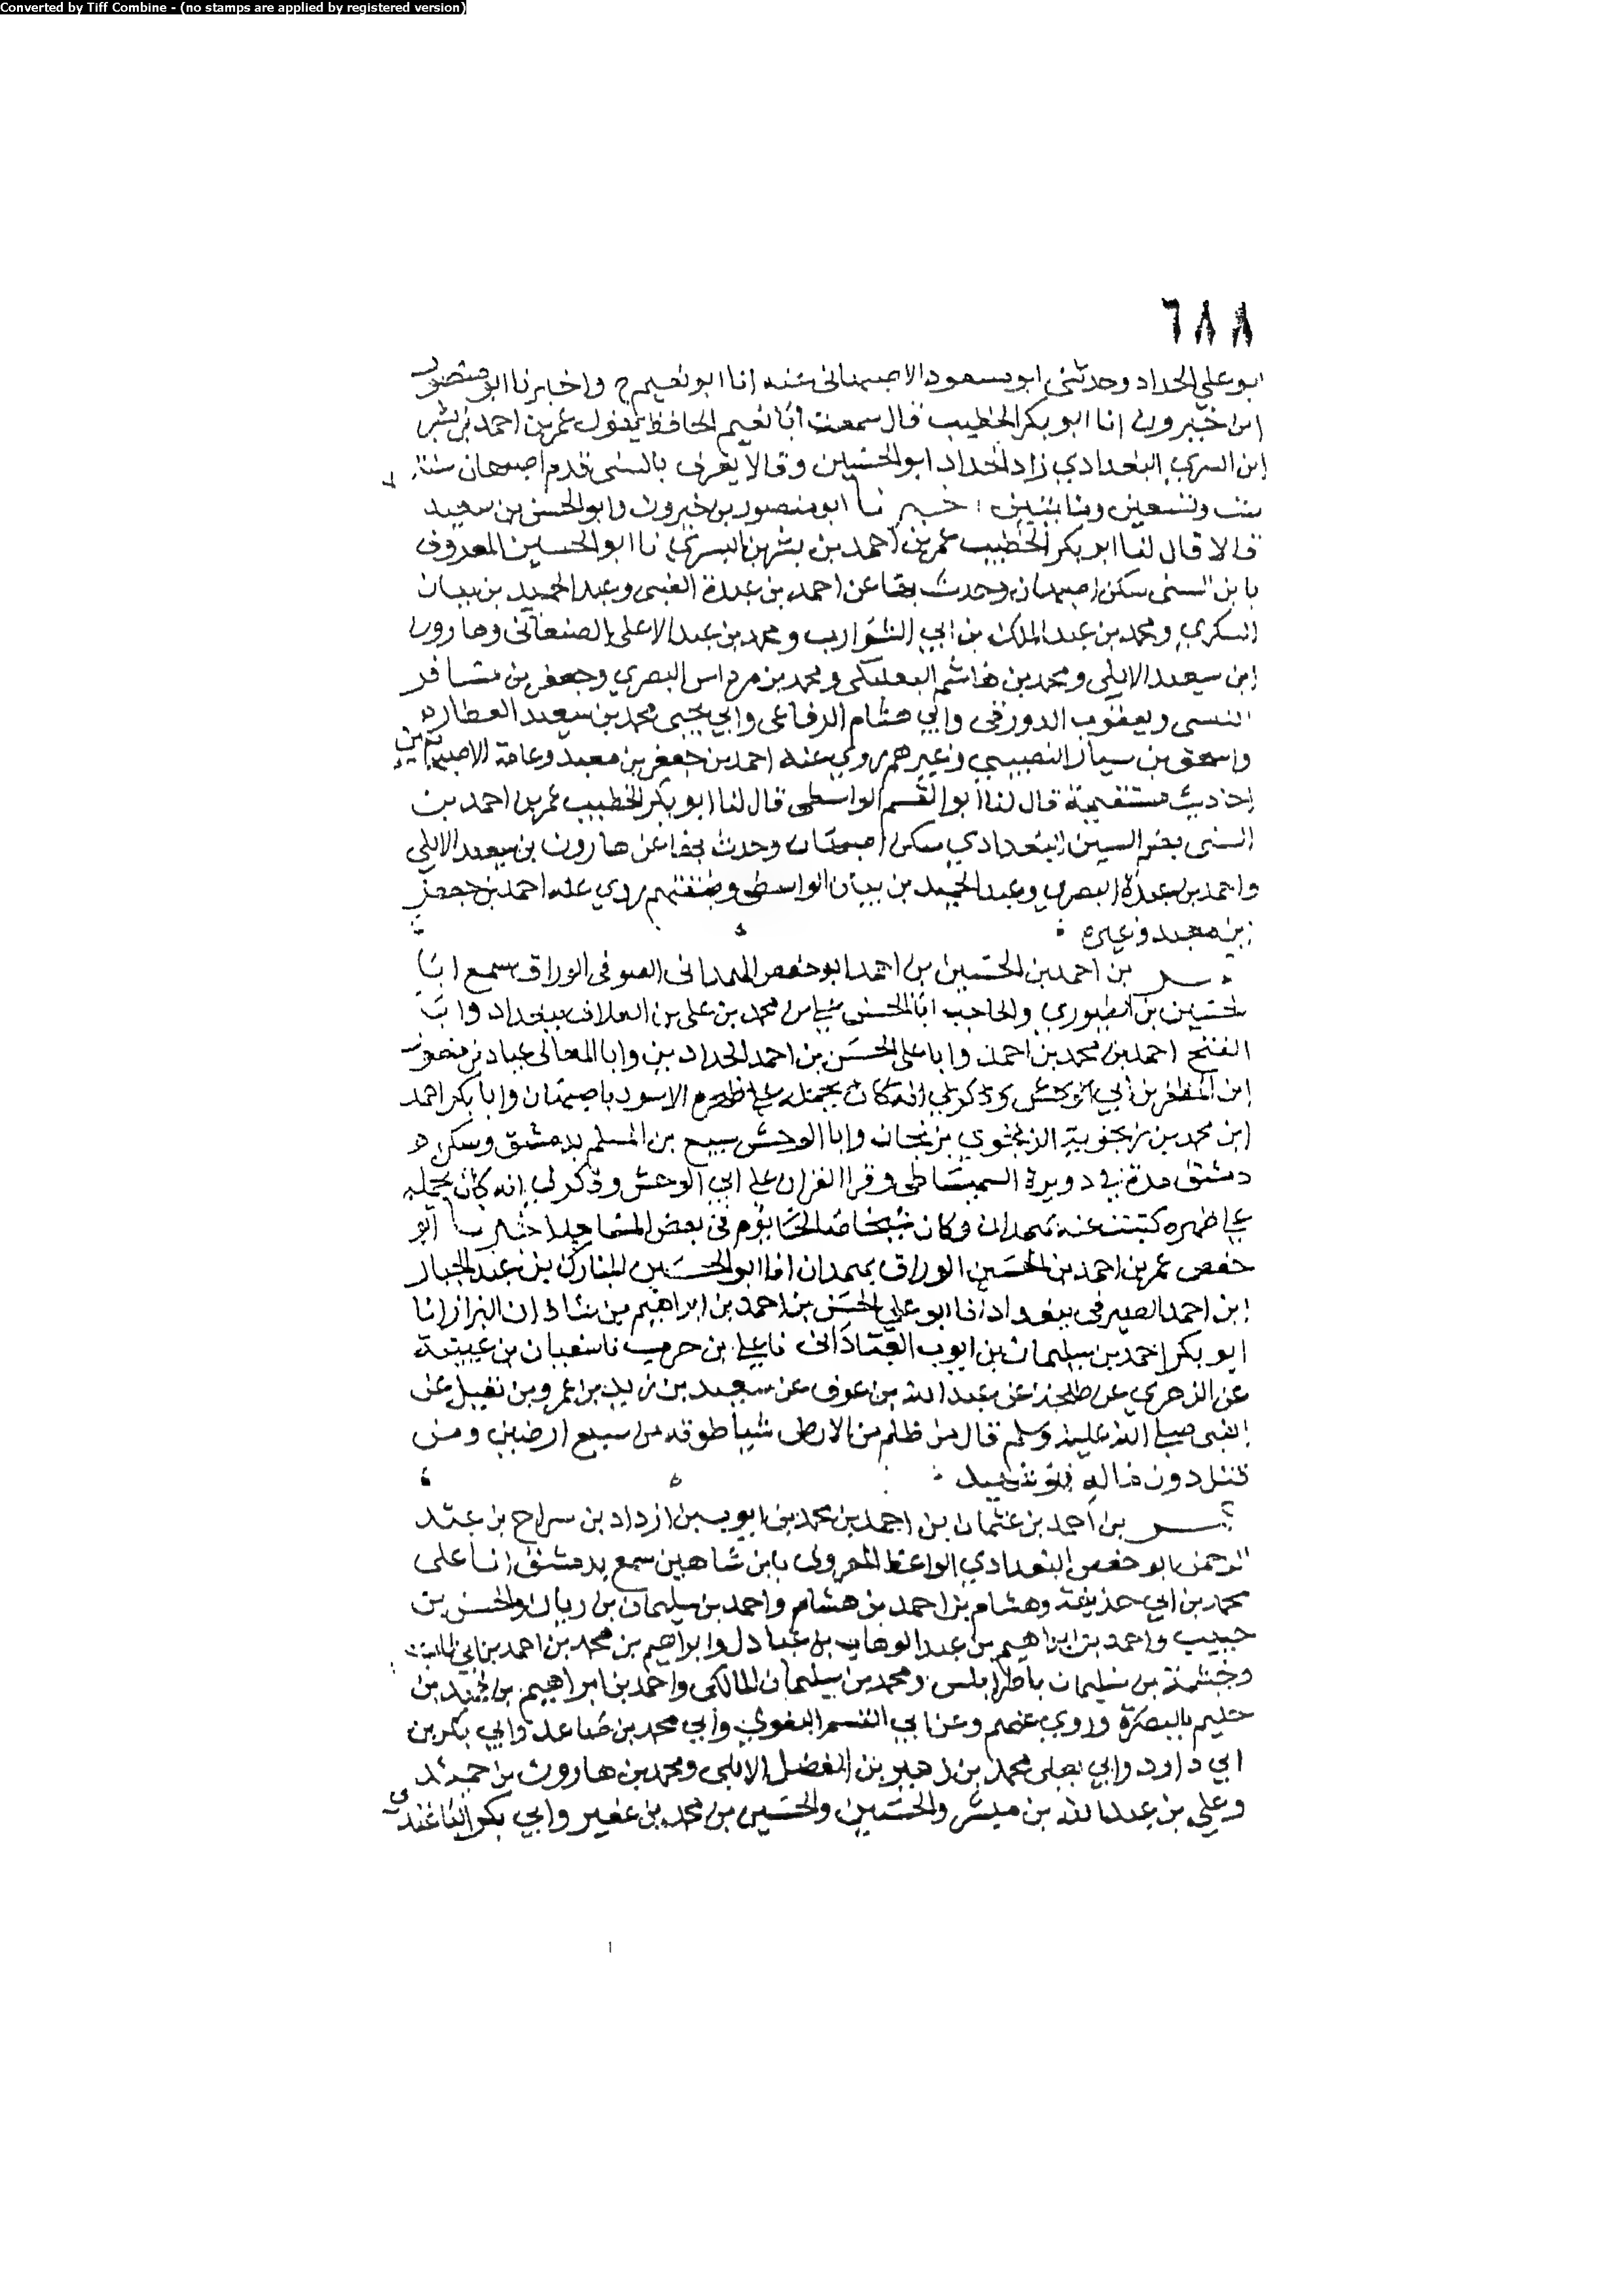 Converted by Tiff Combine - (no stamps are applied by registered version)
٦٨٨
ابو علي الحداد وحدثني ابو مسعود الاصبهاني عنه انا ابو نعيم ح واخبرنا ابو منصور
ابن خيرون انا ابو بكر الخطيب قال سمعت ابا نعيم الحافظ يقول عمر بن احمد بن بشر
ابن السري البغدادي زاد الحداد ابو الحسين وقالا يعرف بالسنى قدم اصبهان سنة
ست وتسعين ومائتين اخبرنا ابو منصور بن خيرون وابو الحسن بن سعيد
قالا قال لنا ابو بكر الخطيب عمر بن احمد بن بشر بن السري نا ابو الحسين المعروف
بابن السنى سكن اصبهان وحدث بها عن احمد بن عبدة الضبى وعبد الحميد بن بيان
السكري ومحمد بن عبد الملك بن ابي الشوارب ومحمد بن عبد الاعلى الصنعانى وهارون
ابن سعيد الايلى ومحمد بن هاشم البعلبكى ومحمد بن مرداس البصري وجعفر بن مسافر
التنسى ويعقوب الدورقى وابي هشام الرفاعى وابي يحيى محمد بن سعيد العطار
واسحق بن سيار النصيبي وغيرهم روي عنه احمد بن جعفر بن معبد وعامة الاصبهانيين
احاديث مستقيمة قال لنا ابو القسم الواسطى قال لنا ابو بكر الخطيب عمر بن احمد بن
السنى بضم السين البغدادي سكن اصبهان وحدث بها عن هارون بن سعيد الايلي
واحمد بن عبدة البصري وعبد الحميد بن بيان الواسطى وطبقتهم روي عنه احمد بن جعفر
بن معبد وغيره
بن احمد بن الحسين بن احمد ابو حفص الهمدانى الصوفى الوراق سمع ابا
الحسين بن الطيوري والحاجب ابا الحسن علي بن محمد بن على بن العلاف ببغداد وابا
الفتح احمد بن محمد بن احمد وابا على الحسن بن احمد الحدادين وابا المعالى عباد بن منصور
ابن المظفر بن ابي وذكر لي انه كان يحمله علي ظهره الاسود باصبهان وابا بكر احمد
ابن محمد بن زنجوية الزنجوي بزنجان وابا الوحش سبيع بن المسلم بدمشق وسكن
دمشق مدة في دويرة السميساطى وقرا القران علي ابي الوحش وذكر لى انه كان يحمله
علي ظهره كتبت عنه بهمدان وكان شيخا صالحا يؤم فى بعض المساجد اخبرنا ابو
حفص عمر بن احمد بن الحسين الوراق بهمدان انا ابو الحسين المبارك بن عبد الجبار
ابن احمد الصيرفى ببغداد انا ابو علي الحسن بن احمد بن ابراهيم بن شاذان البزاز انا
ابو بكر احمد بن سليمان بن ايوب العبادانى نا علي بن حرب نا سفيان بن عيينة
عن الزهري عن طلحة عن عبد الله بن عوف عن سعيد بن زيد بن عمرو بن نفيل عن
النبى صلي الله عليه وسلم قال من ظلم من الارض شيا طوقه من سبع ارضين ومن
قتل دون ماله فهو شهيد
بن احمد بن عثمان بن احمد بن محمد بن ايوب بن ازداد بن سراح بن عبد
الرحمن ابو حفص البغدادي الواعظ المعروف بابن شاهين سمع بدمشق ابا على
محمد بن ابي حذيفة وهشام بن احمد بن هشام واحمد بن سليمان بن زبان والحسن بن
حبيب واحمد بن ابراهيم بن عبد الوهاب بن عبادل وابراهيم بن محمد بن احمد بن ابي ثابت
وخيثمة بن سليمان باطرابلس ومحمد بن سليمان المالكى واحمد بن ابراهيم بن
حليم بالبصرة وروي عنهم وعن ابي القسم البغوي وابي محمد بن صاعد وابي بكر بن
ابي داود وابي يعلى محمد بن زهير بن الفضل الابلى ومحمد بن هارون بن حميد
وعلي بن عبد الله بن مبشر والحسين والحسين بن محمد بن عفير وابي بكر الباغندي